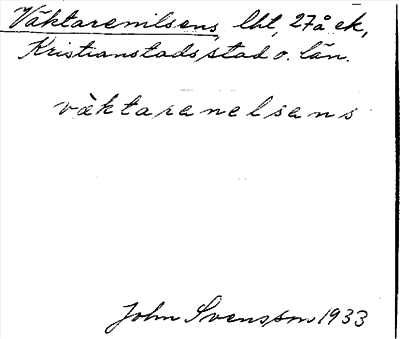 Väktarenilsens, lht, 27å ek,
Kristianstads stad o. län.
väktarenelsens
John Svensson 1933